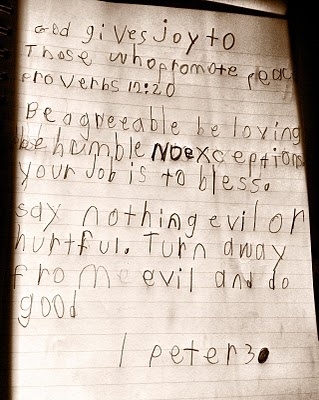 God gives joy to
Those who promote peac
Proverbs 12:20
Be agreeable be loving
be humble NOexception
your Job is to bless.
say nothing evil or
hurtful. Turn away
from evil and do
good
1 peter3